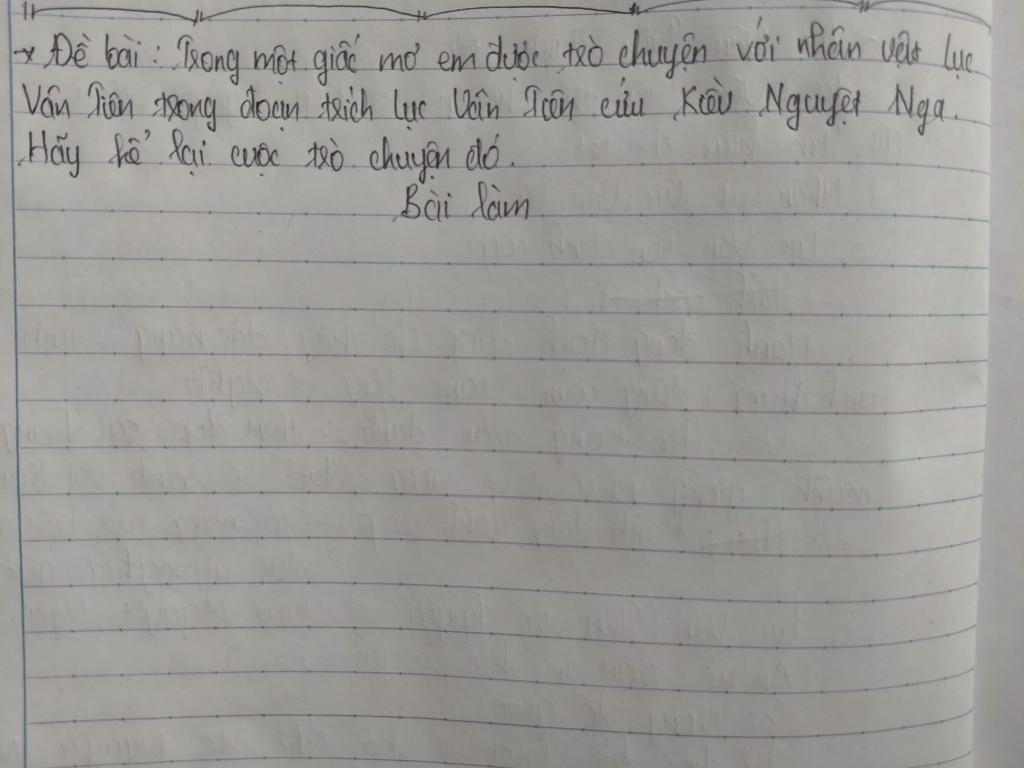 → Đề bài: Trong một giấc mơ em được trò chuyện với nhân vật Lục
Vân Tiên trong đoạn trích Lục Vân Tiên cứu Kiều Nguyệt Nga.
Hãy kể lại cuộc trò chuyện đó.
Bài làm